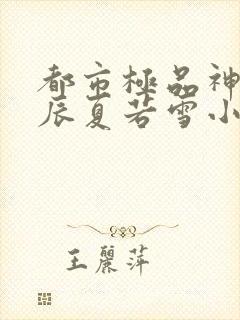 都市極品神
辰夏若雪小
王麗萍